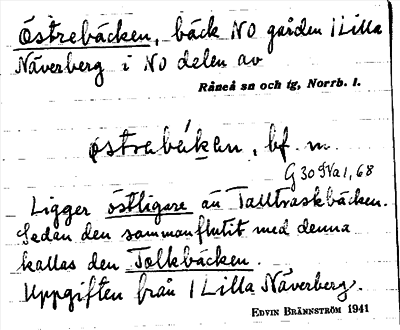 Östrebäcken, bäck NO gården 1 Lilla
Näverberg i NO delen av
Råneå sn och tg, Norrb. l.
østrabǻkan, bf. m.
G 30 SVa 1, 68
Ligger östligare än Talltraskbäcken.
Sedan den sammanflutit med denna
kallas den Tolkbäcken.
Uppgiften från 1 Lilla Näverberg.
EDVIN BRÄNNSTRÖM 1941